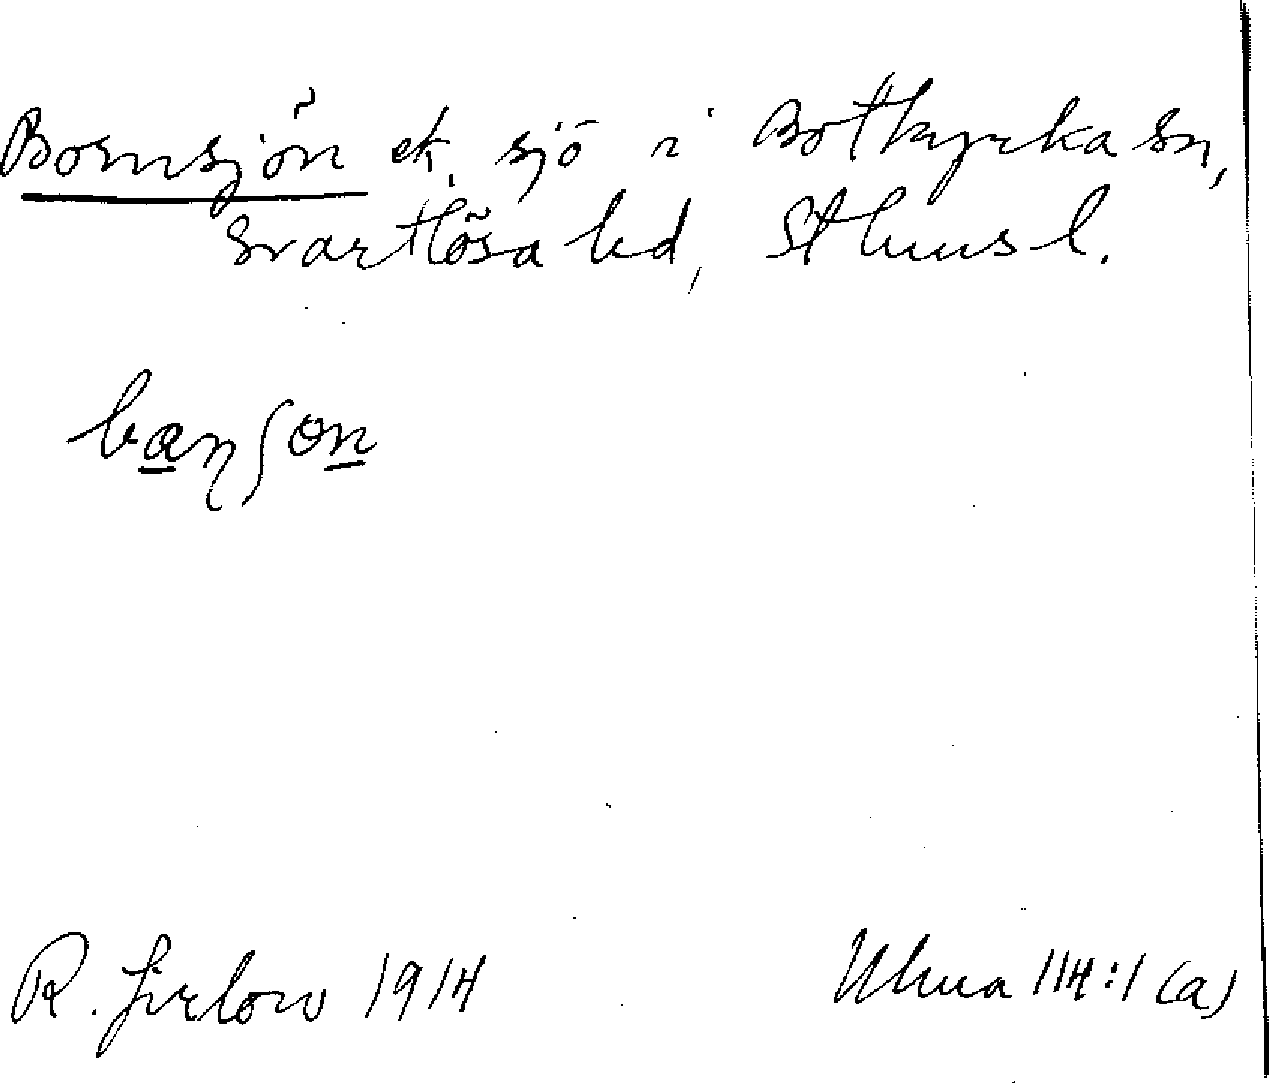 Bornsjön ek. sjö i Botkyrka sn,
Svartlösa hd, Sthms l.
baɳʃon
R. Jirlow 1914
Ulma 114:1 (a)